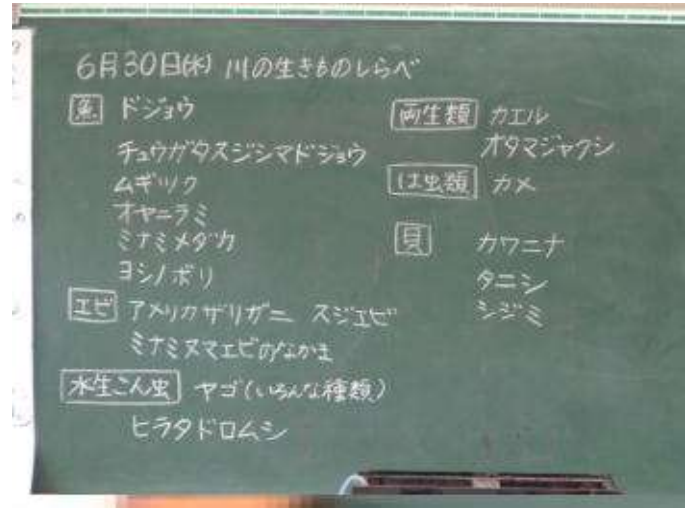 6月30日(水) 川の生きものしらべ
魚 ドジョウ
チュウガタスジシマドジョウ
ムギツク
オヤニラミ
ミナミメダカ
ヨシノボリ
エビ アメリカザリガニ スジエビ
ミナミヌマエビのなかま
水生こん虫 ヤゴ(いろんな種類)
ヒラタドロムシ
両生類 カエル
オタマジャクシ
は虫類 カメ
貝 カワニナ
タニシ
シジミ